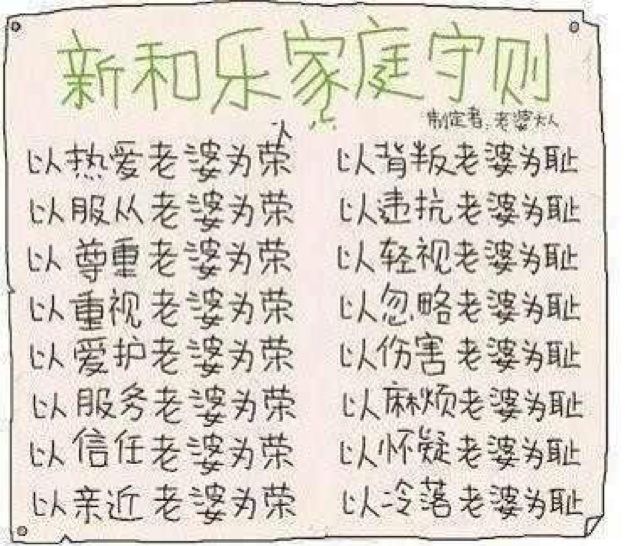 新和乐家庭守则
制定者:老婆大人
以热爱老婆为荣 以背叛老婆为耻
以服从老婆为荣 以违抗老婆为耻
以尊重老婆为荣 以轻视老婆为耻
以重视老婆为荣 以忽略老婆为耻
以爱护老婆为荣 以伤害老婆为耻
以服务老婆为荣 以麻烦老婆为耻
以信任老婆为荣 以怀疑老婆为耻
以亲近老婆为荣 以冷落老婆为耻